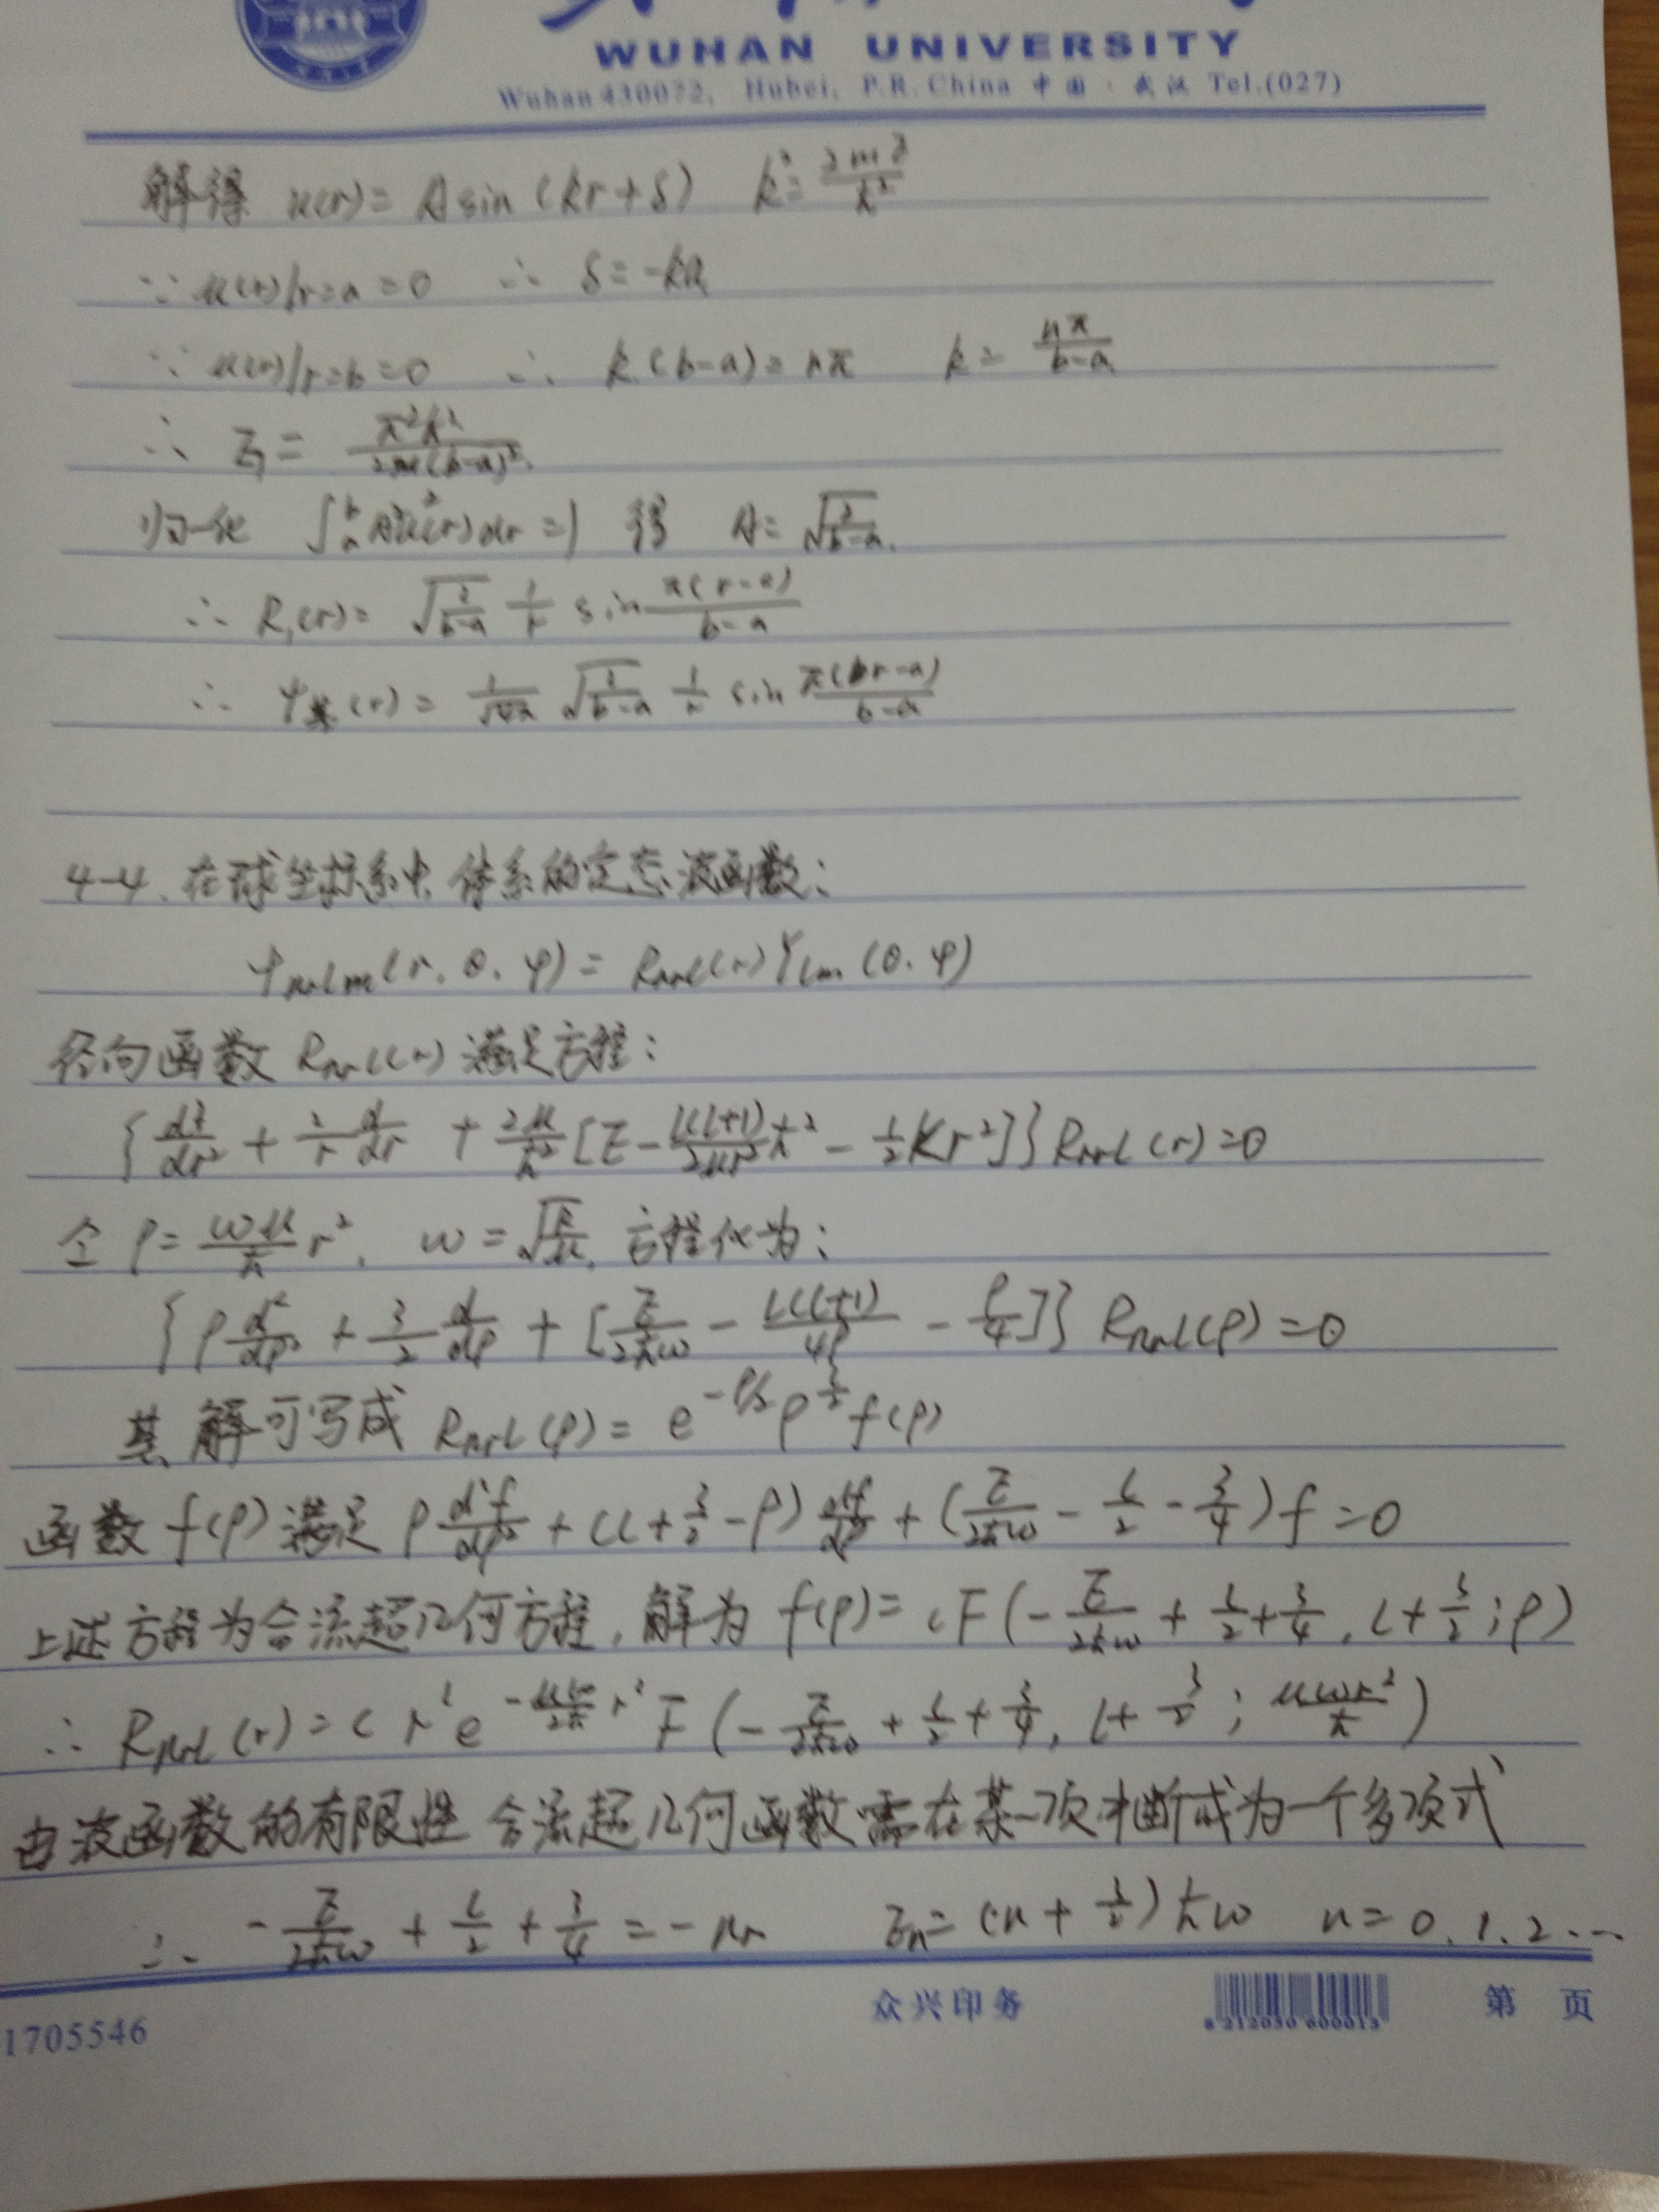 WUHAN UNIVERSITY
Wuhan 430072, Hubei, P.R. China 中国·武汉 Tel.(027)
解得 u(r) = A sin (kr + δ) k² = 2mE/ħ²
∵ u(r)|r=a = 0 ∴ δ = -ka
∵ u(r)|r=b = 0 ∴ k(b-a) = nπ k = nπ/(b-a)
∴ E₁ = π²ħ²/2m(b-a)².
归一化 ∫ₐᵇ A²u²(r)dr = 1 得 A = √(2/(b-a)).
∴ R₁(r) = √(2/(b-a)) 1/r sin π(r-a)/(b-a)
∴ ψ基(r) = 1/√4π √(2/(b-a)) 1/r sin π(r-a)/(b-a)
4-4. 在球坐标系中, 体系的定态波函数:
ψnrlm(r. θ. φ) = Rnrl(r)Ylm(θ. φ)
径向函数 Rnrl(r) 满足方程:
{d²/dr² + 2/r d/dr + 2μ/ħ² [E - l(l+1)/2μr² ħ² - 1/2 Kr²]} Rnrl(r) = 0
令 ρ = ωμ/ħ r², ω = √(k/μ), 方程化为:
{ρ d²/dρ² + 3/2 d/dρ + [E/2ħω - l(l+1)/4ρ - ρ/4]} Rnrl(ρ) = 0
其解可写成 Rnrl(ρ) = e^(-ρ/2) ρ^(l/2) f(ρ)
函数 f(ρ) 满足 ρ d²f/dρ² + (l + 3/2 - ρ) df/dρ + (E/2ħω - l/2 - 3/4) f = 0
上述方程为合流超几何方程, 解为 f(ρ) = cF(-E/2ħω + l/2 + 3/4, l + 3/2; ρ)
∴ Rnrl(r) = c r^l e^(-μω/2ħ r²) F(-E/2ħω + l/2 + 3/4, l + 3/2; μωr²/ħ)
由波函数的有限性 合流超几何函数需在某一项中断成为一个多项式
∴ -E/2ħω + l/2 + 3/4 = -nr En = (n + 3/2)ħω n = 0. 1. 2 ...
1705546 众兴印务 第 页